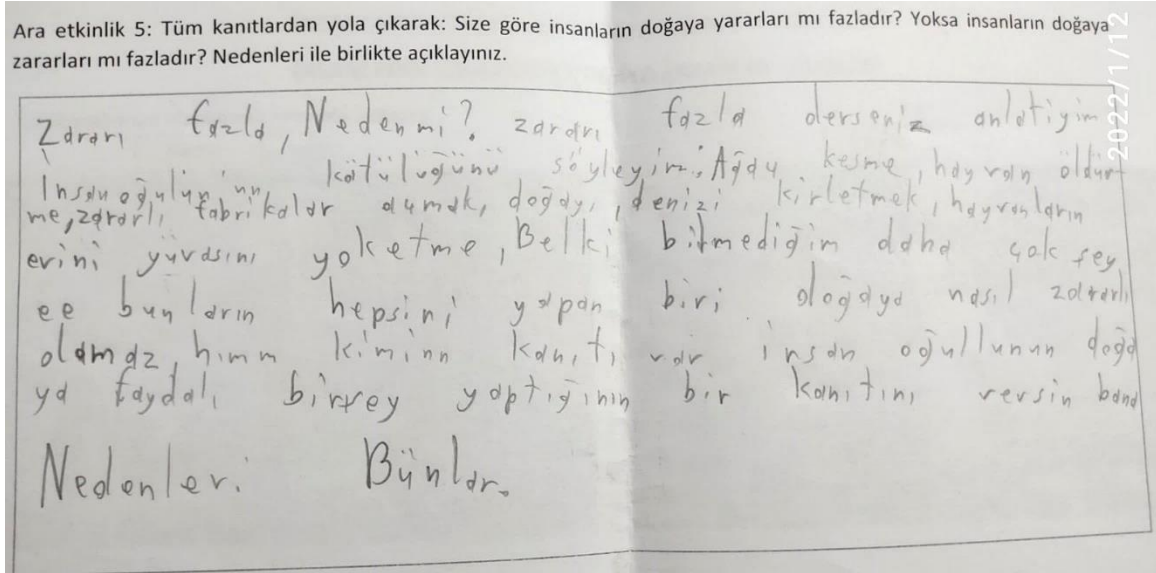 Ara etkinlik 5: Tüm kanıtlardan yola çıkarak: Size göre insanların doğaya yararları mı fazladır? Yoksa insanların doğaya
zararları mı fazladır? Nedenleri ile birlikte açıklayınız.
2022/1/12
Zararı fazla, Neden mi? zararı fazla derseniz anlatiyim
İnsanoğulunun'un kötülüğünü söyleyim: Ağdu kesme, hayvan öldür-
me, zararlı fabrikalar dumak, doğayı, denizi kirletmek, hayvanların
evini yüvasını yoketme, Belki bilmediğim daha çok şey
ee bunların hepsini yapan biri doğaya nasıl zararlı
olamaz, himm kiminn kanıtı var insan oğullunun doğa
ya faydalı birşey yaptığının bir kanıtını versin bana
Nedenleri Bünlar.